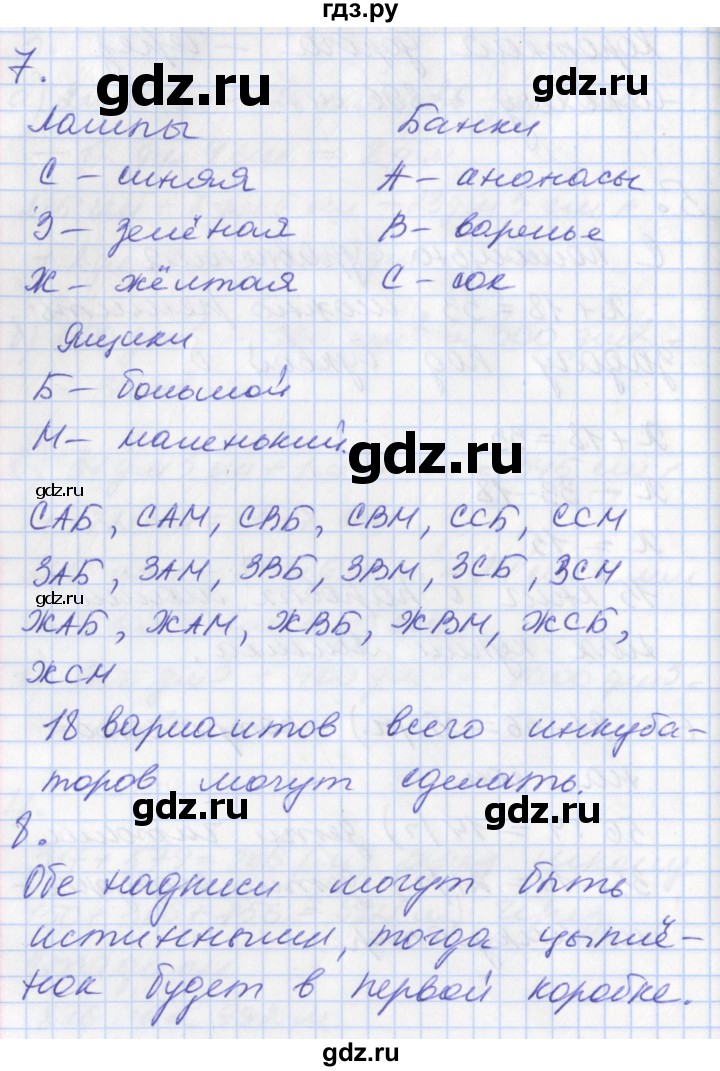 гдз.ру
7.
gdz.ru
gdz.ru
Лампы Банки
С – синяя А – анонасы
З – зелёная В – варенье
Ж – жёлтая С – сок
Ящики
Б – большой
М – маленький.
gdz.ru
gdz.ru
САБ, САМ, СВБ, СВМ, ССБ, ССМ
ЗАБ, ЗАМ, ЗВБ, ЗВМ, ЗСБ, ЗСМ
gdz.ru
ЖАБ, ЖАМ, ЖВБ, ЖВМ, ЖСБ,
ЖСМ
18 вариантов всего инкуба-
торов могут сделать.
gdz.ru
gdz.ru
8.
Обе надписи могут быть
истинными, тогда цыплё-
нок будет в первой коробке.
gdz.ru